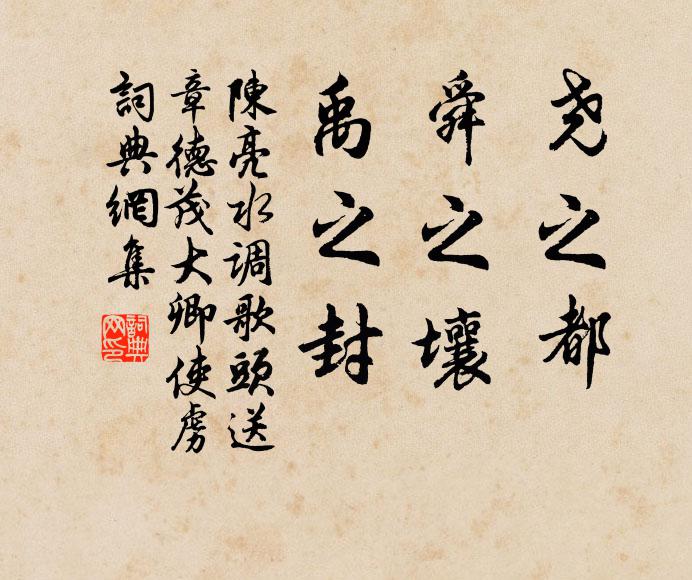 尧之都
舜之壤
禹之封
陳亮水调歌頭送
章德茂大卿使虏
詞典網集
詞典
网印